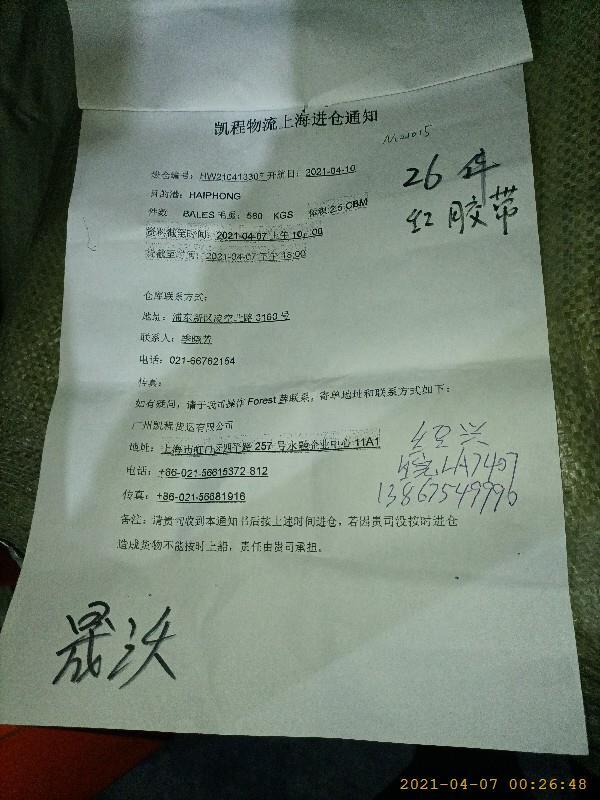 凯程物流上海进仓通知
26件
红胶带
进仓编号: HW210413307 开航日: 2021-04-10
目的港: HAIPHONG
件数 BALES 毛重: 560 KGS 体积 2.5 CBM
资料截至时间: 2021-04-07 上午 10:00
货截至时间: 2021-04-07 下午 18:00
仓库联系方式:
地址: 浦东新区凌空北路 3160 号
联系人: 李晓芳
电话: 021-66762154
传真:
如有疑问, 请于我司操作 Forest 薛联系, 寄单地址和联系方式如下:
广州凯程货运有限公司
地址: 上海市虹口区四平路 257 号水融企业中心 11A1
电话: +86-021-56615372-812
传真: +86-021-56681916
绍兴
皖LA7407
13867549996
备注: 请贵司收到本通知书后按上述时间进仓, 若因贵司没按时进仓
造成货物不能按时上船, 责任由贵司承担。
晟沃
2021-04-07 00:26:48